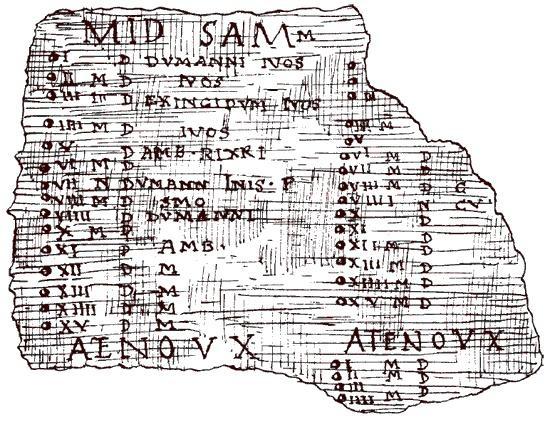 MID SAMM
I D DVMANNI IVOS
II M D IVOS
III D EXINGIDVM IVOS
IIII M D IVOS
V D AMB·RIXRI
VI M D
VII N DVMANN INIS·R
VIII M D SMO
VIIII D DVMANNI
X M D
XI D AMB·
XII D M
XIII D M
XIIII D M
XV D M
ATENOVX
N
IIII M
V
VI M D
VII M D
VIII M D G
VIIII N CV
X D
XI D
XII M D
XIII M D
XIIII M D
XV M D
ATENOVX
I M D
II M D
III D
IIII M